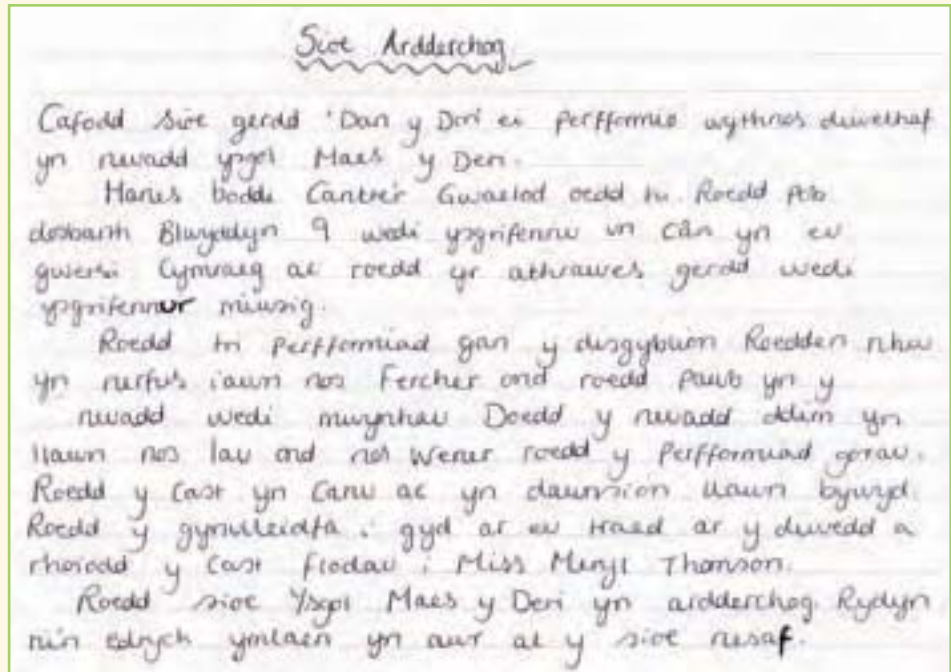 Sioe Ardderchog
Cafodd sioe gerdd 'Dan y Dŵr ei perfformio wythnos diwethaf
yn neuadd ysgol Maes y Deri.
Hanes boddi Cantre'r Gwaelod oedd hi. Roedd pob
dosbarth Blwyddyn 9 wedi ysgrifennu un cân yn eu
gwersi Cymraeg ac roedd yr athrawes gerdd wedi
ysgrifennur miwsig.
Roedd tri perfformiad gan y disgyblion Roedden nhw
yn nerfus iawn nos Fercher ond roedd pawb yn y
neuadd wedi mwynhau Doedd y neuadd ddim yn
llawn nos Iau ond nos Wener roedd y perfformiad gorau.
Roedd y cast yn canu ac yn dawnsion llawn bywyd.
Roedd y gynulleidfa i gyd ar eu traed ar y diwedd a
rhoiodd y cast flodau i Miss Thomson.
Roedd sioe Ysgol Maes y Deri yn ardderchog. Rydyn
ni'n edrych ymlaen yn awr at y sioe nesaf.